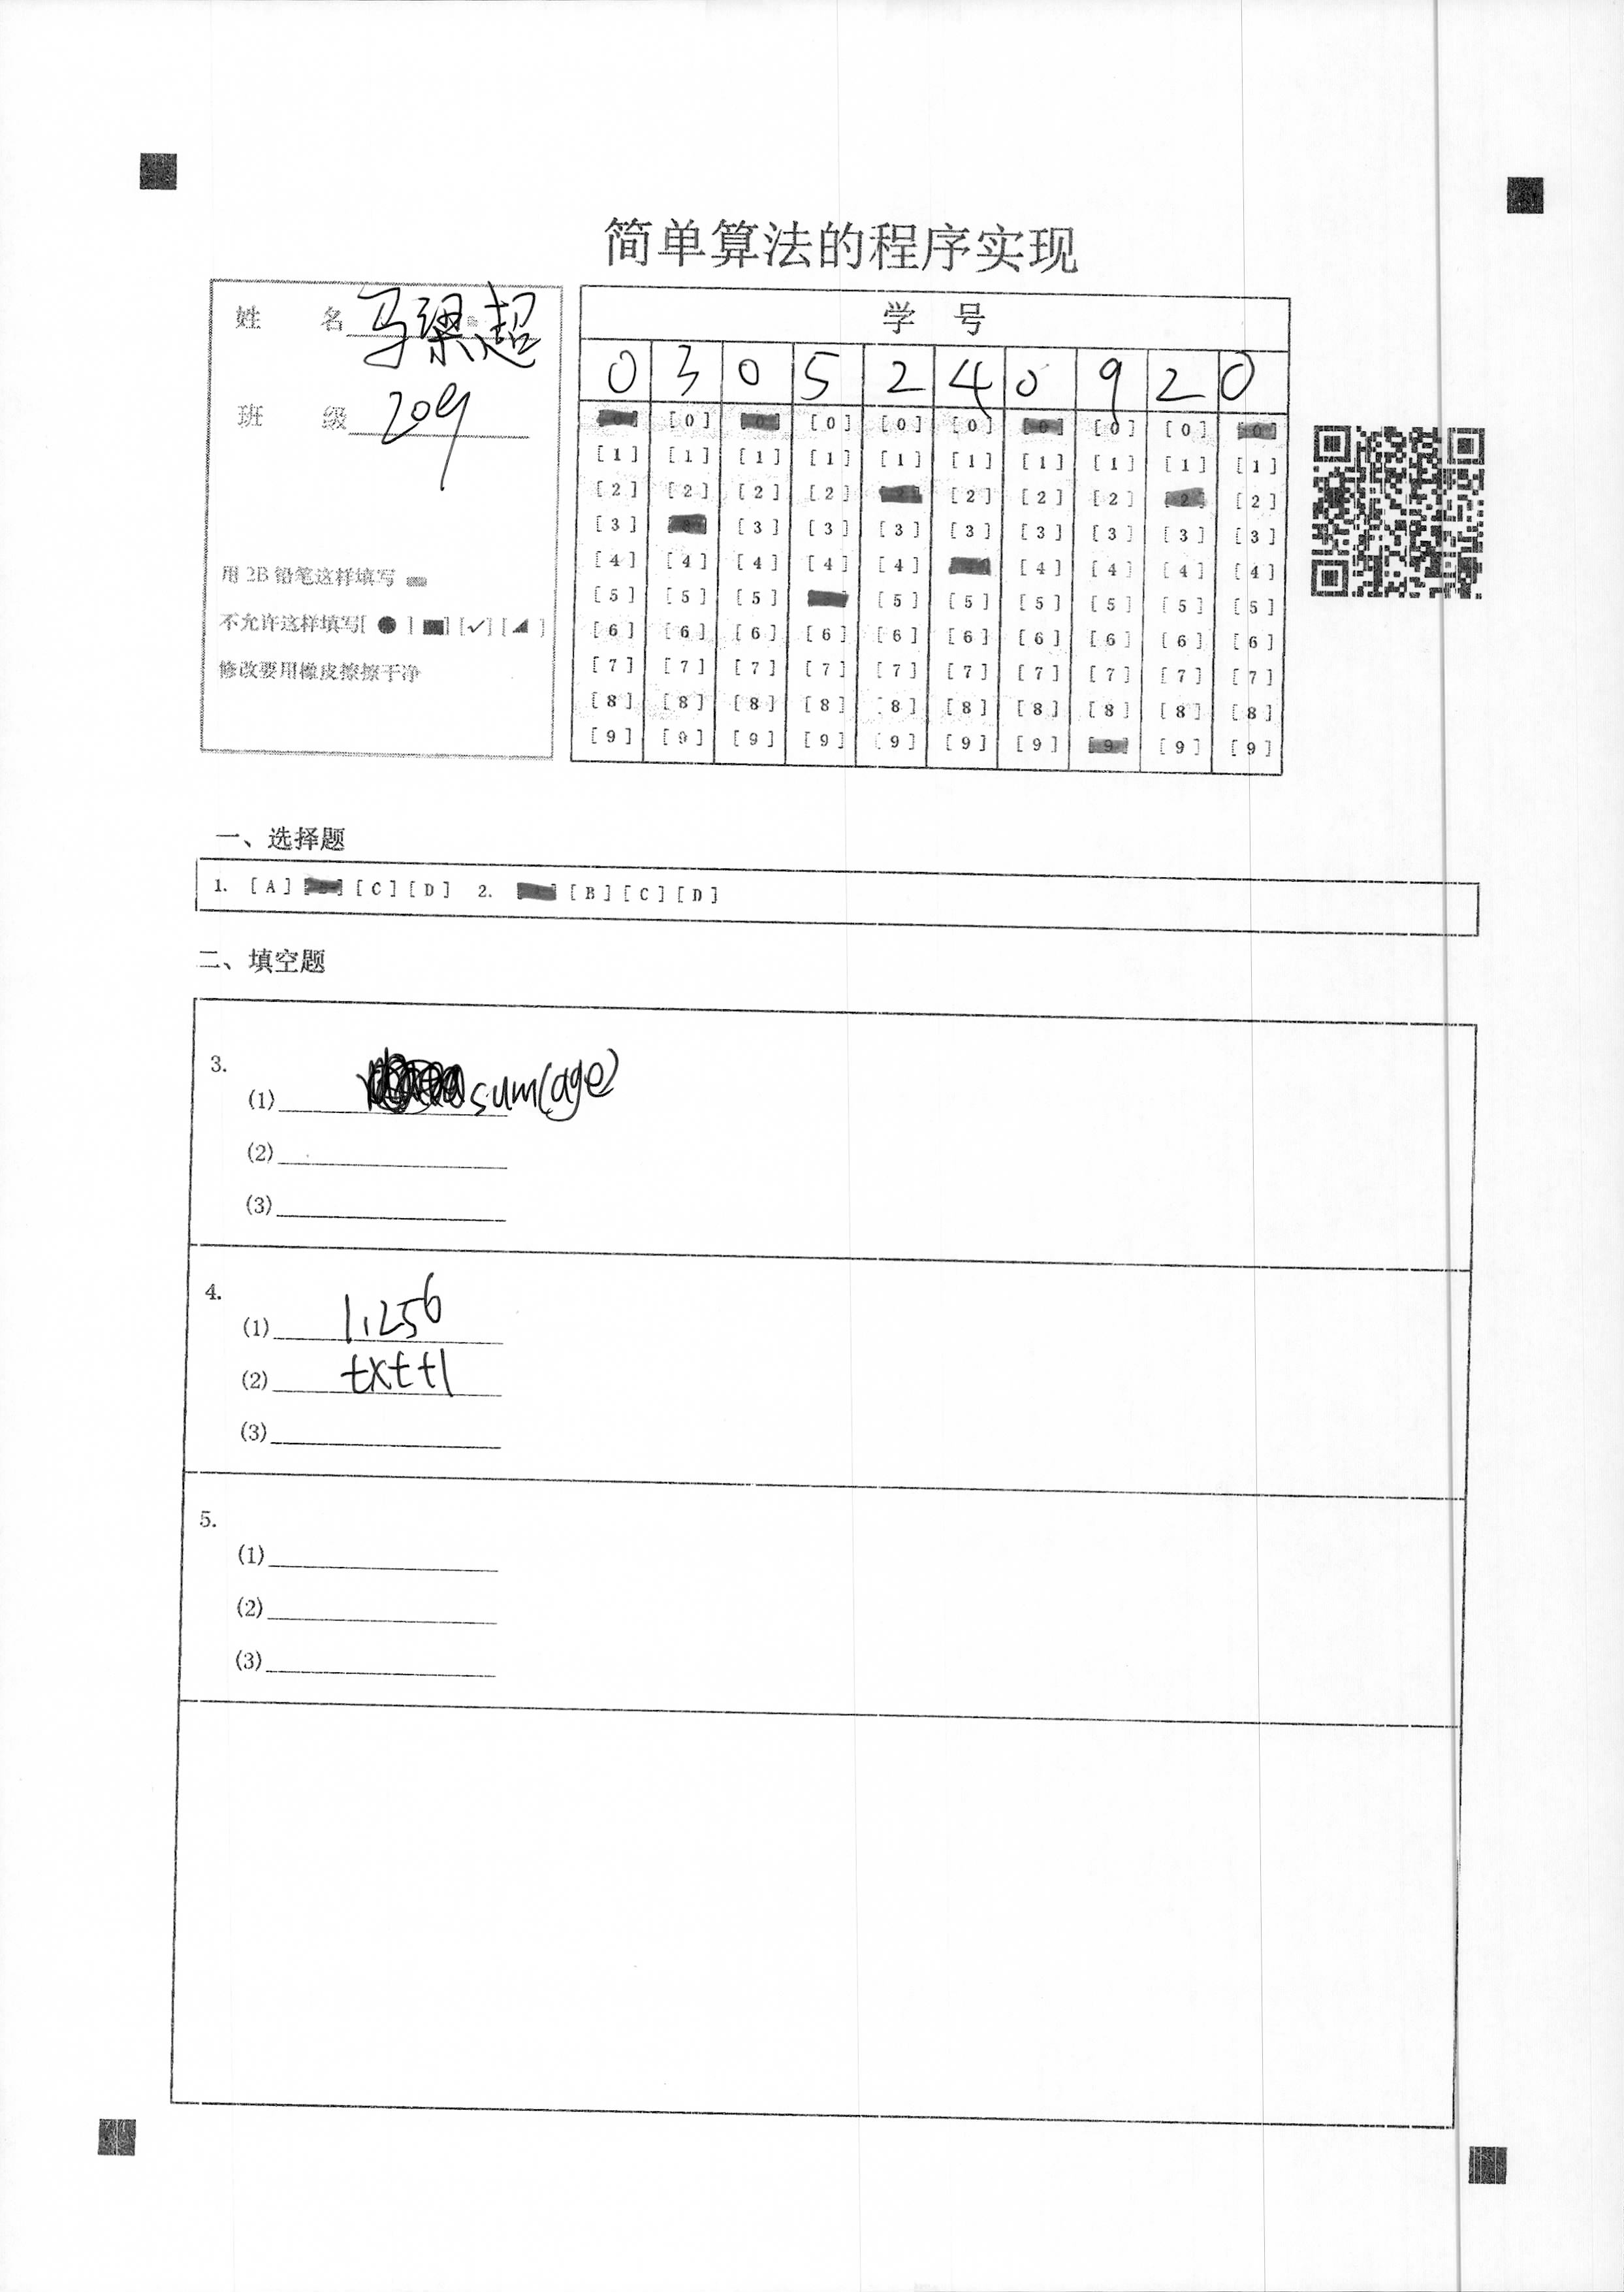 简单算法的程序实现
姓 名 马梁超
班 级 209
用 2B 铅笔这样填写
不允许这样填写[ ● ] [■] [✓] [◢ ]
修改要用橡皮擦擦干净
学 号
0 3 0 5 2 4 0 9 2 0
[0] [0] [0] [0] [0] [0] [0] [0] [0] [0]
[1] [1] [1] [1] [1] [1] [1] [1] [1] [1]
[2] [2] [2] [2] [2] [2] [2] [2] [2] [2]
[3] [3] [3] [3] [3] [3] [3] [3] [3] [3]
[4] [4] [4] [4] [4] [4] [4] [4] [4]
[5] [5] [5] [5] [5] [5] [5] [5] [5]
[6] [6] [6] [6] [6] [6] [6] [6] [6] [6]
[7] [7] [7] [7] [7] [7] [7] [7] [7] [7]
[8] [8] [8] [8] [8] [8] [8] [8] [8] [8]
[9] [9] [9] [9] [9] [9] [9] [9] [9] [9]
一、选择题
1. [A] [C] [D] 2. [B] [C] [D]
二、填空题
3.
(1) sum(age)
(2)
(3)
4.
(1) 1,256
(2) txt+1
(3)
5.
(1)
(2)
(3)